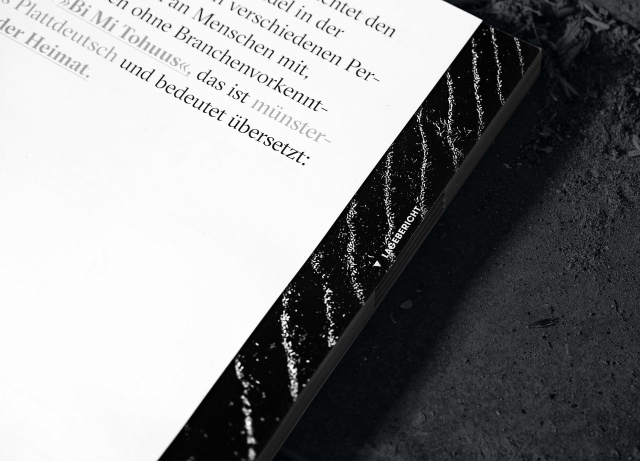 htet den
del in der
n verschiedenen Per-
an Menschen mit,
ch ohne Branchenvorkennt-
»Bi Mi Tohuus«, das ist münster-
s Plattdeutsch und bedeutet übersetzt:
der Heimat.
LAGEBERICHT